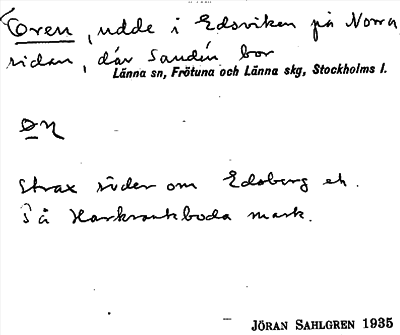 Oren, udde i Edsviken på Norra
sidan, där Sandén bor
Länna sn, Frötuna och Länna skg, Stockholms l.
Strax söder om Edsberg
På Harkrankboda mark.
JÖRAN SAHLGREN 1935